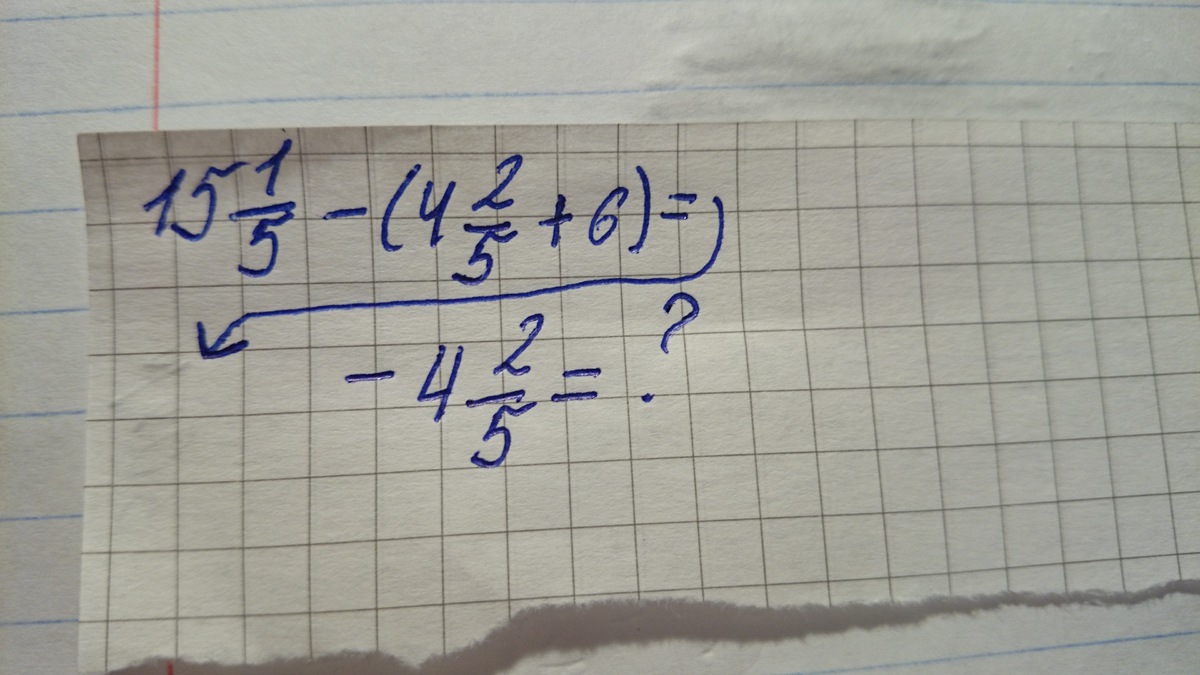 15 1/5 - (4 2/5 + 6) =
- 4 2/5 = ?